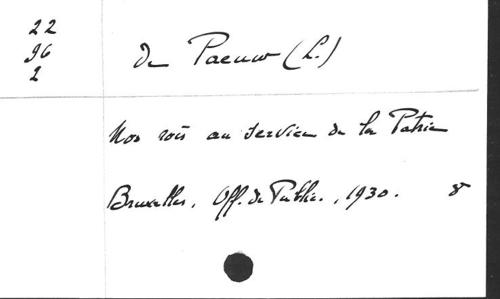 22
96
2
De Paeuw (L.)
Nos rois au service de la Patrie
Bruxelles, Off. de Public., 1930. 8